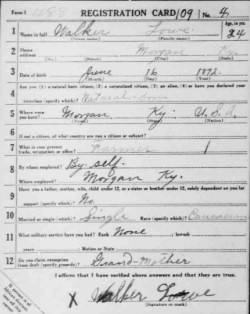 Form 1 REGISTRATION CARD 109 No. 4
1 Name in full Walker Lowe Age, in yrs 24
2 Home address Morgan Ky
3 Date of birth June 16 1892
4 Are you (1) a natural-born citizen, (2) a naturalized citizen, (3) an alien, (4) or have you declared your intention (specify which)? Natural-born
5 Where were you born? Morgan Ky. U.S.A.
6 If not a citizen, of what country are you a citizen or subject?
7 What is your present trade, occupation, or office? Farmer 1
8 By whom employed? By self.
Where employed? Morgan Ky.
9 Have you a father, mother, wife, child under 12, or a sister or brother under 12, solely dependent on you for support (specify which)? No
10 Married or single (which)? Single Race (specify which)? Caucasian
11 What military service have you had? Rank None ; branch
years ; Nation or State
12 Do you claim exemption from draft (specify grounds)? Grand-Mother
I affirm that I have verified above answers and that they are true.
X Walker Lowe
(Signature or mark)